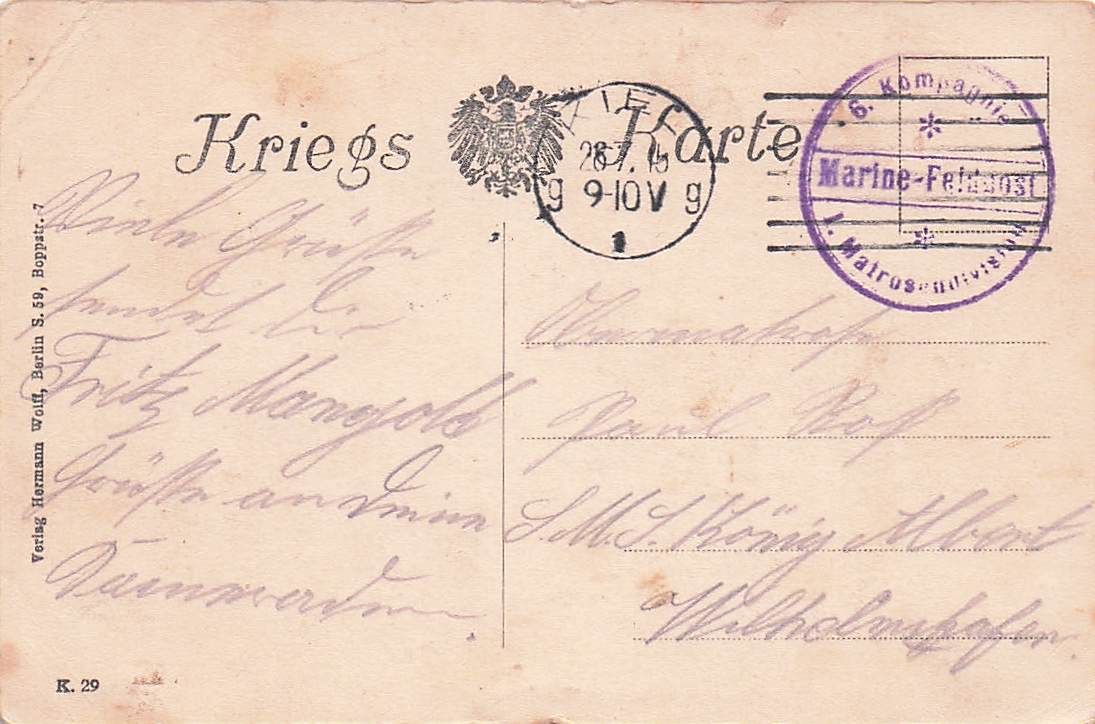 Kriegs Karte
KIEL
28.7.15
g 9-10V g
1
6. Kompagnie
Marine-Feldpost
I. Matrosendivision
Verlag Hermann Wolff, Berlin S. 59, Boppstr. 7
Viele Grüße
sendet Dir
Fritz Mangold
Grüße an
Paul
S.M.S. König Albert
Wilhelmshafen
K. 29